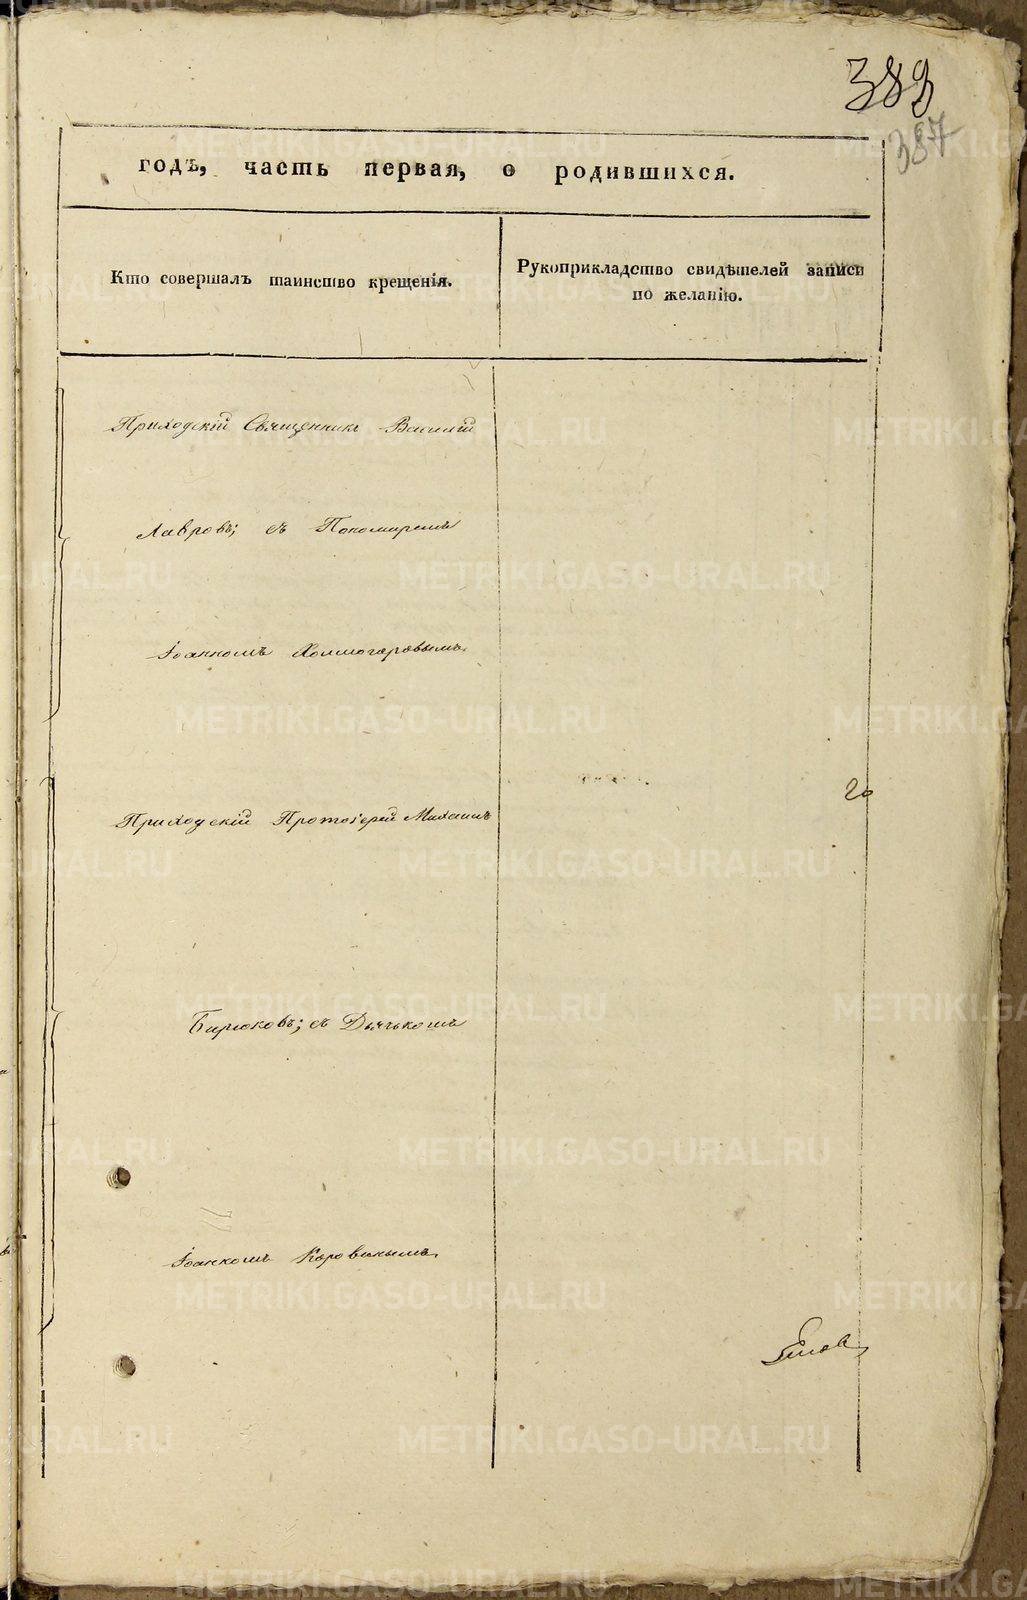 387
годъ, часть первая, о родившихся.
Кто совершалъ таинство крещенія.
Рукоприкладство свидѣтелей записи
по желанію.
Приходскій Священникъ Василій
Лавровъ; съ Пономаремъ
Іоанномъ Холмогоровымъ.
Приходскій Протоіерей Михаилъ
Бирюковъ; съ Дьячькомъ
Іоанномъ Коровинымъ.
METRIKI.GASO-URAL.RU